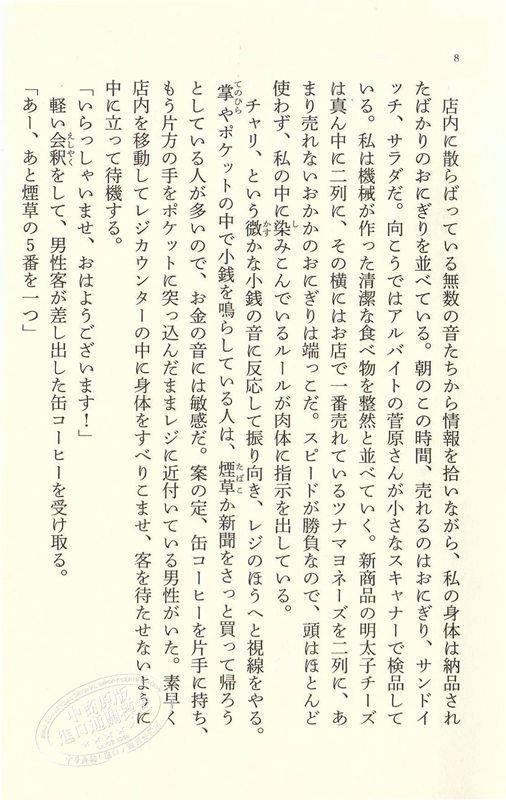 8
店内に散らばっている無数の音たちから情報を拾いながら、私の身体は納品され
たばかりのおにぎりを並べている。朝のこの時間、売れるのはおにぎり、サンドイ
ッチ、サラダだ。向こうではアルバイトの菅原さんが小さなスキャナーで検品して
いる。私は機械が作った清潔な食べ物を整然と並べていく。新商品の明太子チーズ
は真ん中に二列に、その横にはお店で一番売れているツナマヨネーズを二列に、あ
まり売れないおかかのおにぎりは端っこだ。スピードが勝負なので、頭はほとんど
使わず、私の中に染みこんでいるルールが肉体に指示を出している。
チャリ、という微かな小銭の音に反応して振り向き、レジのほうへと視線をやる。
掌やポケットの中で小銭を鳴らしている人は、煙草か新聞をさっと買って帰ろう
としている人が多いので、お金の音には敏感だ。案の定、缶コーヒーを片手に持ち、
もう片方の手をポケットに突っ込んだままレジに近付いている男性がいた。素早く
店内を移動してレジカウンターの中に身体をすべりこませ、客を待たせないように
中に立って待機する。
「いらっしゃいませ、おはようございます！」
軽い会釈をして、男性客が差し出した缶コーヒーを受け取る。
「あー、あと煙草の5番を一つ」